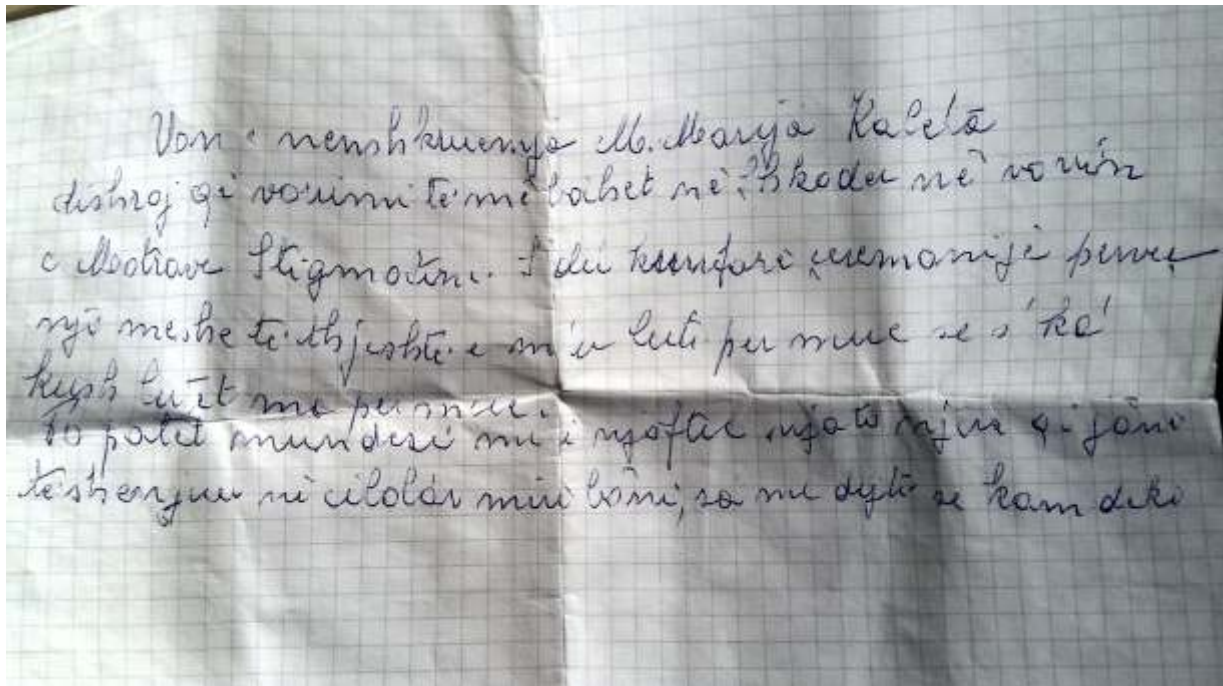 Un e nenshkruemja M. Marija Kaleta
dishroj qi vorrimi têm bâhet në Shkoder në vorrin
e Motrave Stigmatine. S'du kurrfarë ceremonije perveç
një meshe të thjeshtë e m'u lutë per mue se s'ka
kush lutet ma per mue.
Po patët mundesi me i njoftue njato njerz qi jânë
të shenjuem në celolar mirë bâni, sa me dijtë se kam dekë